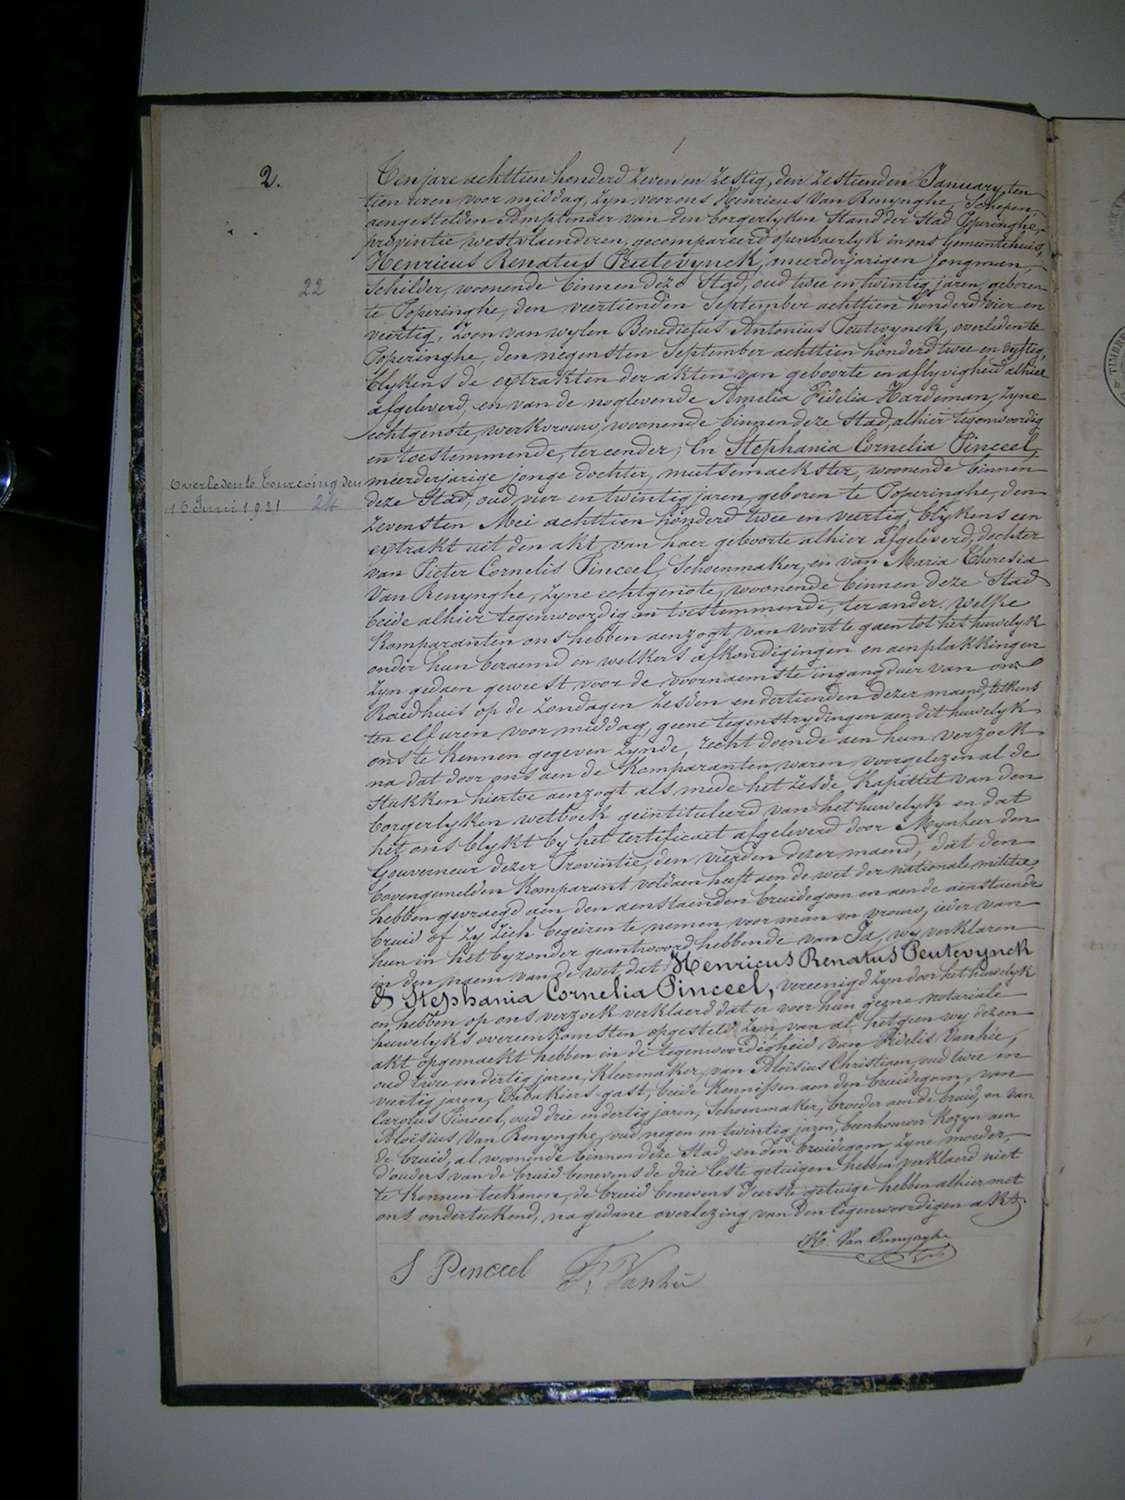 1
2.
Ten jare achttien honderd zeven en zestig, den zestienden January, ten
tien uren voor middag, zyn voor ons Henricus Van Renynghe, Schepen,
aengestelden Amptenaer van den borgerlyken Stand der Stad Poperinghe,
provintie westvlaenderen, gecompareerd openbaerlyk in ons Gemeentehuis,
Henricus Renatus Peutevynck, meerderjarigen jongman,
22
Schilder, woonende binnen deze Stad, oud twee en twintig jaren, geboren
te Poperinghe, den veertienden September achttien honderd vier en
veertig, zoon van wylen Benedictus Antonius Peutevynck, overleden te
Poperinghe, den negensten September achttien honderd twee en vyftig,
blykens de extrakten der akten van geboorte en aflyvigheid alhier
afgeleverd, en van de noglevende Amelia Fidelia Hardeman, zyne
echtgenote, werkvrouw, woonende binnen deze Stad, alhier tegenwoordig
en toestemmende, ter eender; En Stephania Cornelia Pinceel,
meerderjarige jonge dochter, mutsemaekster, woonende binnen
Overleden te Tourcoing den
16 Juni 1931
24
deze Stad, oud vier en twintig jaren, geboren te Poperinghe, den
zevensten Mei achttien honderd twee en veertig, blykens een
extrakt uit den akt van haer geboorte alhier afgeleverd, dochter
van Pieter Cornelis Pinceel, Schoenmaker, en van Maria Theresia
Van Renynghe, zyne echtgenote, woonende binnen deze Stad
beide alhier tegenwoordig en toestemmende, ter ander. Welke
Komparanten ons hebben aenzogt van voort te gaen tot het huwelyk
onder hun beraemd en welkers afkondigingen en aenplakkingen
zyn gedaen geweest voor de voornaemste ingangdeur van ons
Raedhuis op de zondagen zesden en dertienden dezer maend, telkens
ten elf uren voor middag, geene tegenstrydingen aen dit huwelyk
ons te kennen gegeven zynde, recht doende aen hun verzoek
na dat door ons aen de Komparanten waren voorgelezen al de
Stukken hiertoe aenzogt als mede het zesde Kapittel van den
borgerlyken wetboek geïntituleerd van het huwelyk en dat
het ons blykt by het certificaet afgeleverd door Mynheer den
Gouverneur dezer Provintie, den vierden dezer maend, dat den
bovengemelden Komparant voldaen heeft aen de wet der nationale militie,
hebben gevraegd aen den aenstaenden bruidegom en aen de aenstaende
bruid of zy zich begeiren te nemen voor man en vrouw, ieder van
hun in het byzonder geantwoord hebbende van Ja, wy verklaren
in den naem van de wet, dat Henricus Renatus Peutevynck
& Stephania Cornelia Pinceel, vereenigd zyn door het huwelyk
en hebben op ons verzoek verklaerd dat er voor hun geene notariale
huwelyks overeenkomsten opgesteld zyn, van al het geen wy dezen
akt opgemaekt hebben in de tegenwoordigheid van Fidelis Vanhée,
oud twee en dertig jaren, Kleermaker, van Aloïsius Christiaen, oud twee en
veertig jaren, Tabakiers gast, beide Kennissen aen den bruidegom, van
Carolus Pinceel, oud drie en dertig jaren, Schoenmaker, broeder aen de bruid, en van
Aloïsius Van Renynghe, oud negen en twintig jaren, beenhouwer Kozyn aen
de bruid, al woonende binnen deze Stad, en den bruidegom, zyne moeder,
d'ouders van de bruid benevens de drie leste getuigen hebben verklaerd niet
te konnen teekenen, de bruid benevens d'eerste getuige hebben alhier met
ons onderteekend, na gedane overlezing van den tegenwoordigen akt.
Hi Van Renynghe
S Pinceel F. Vanhée